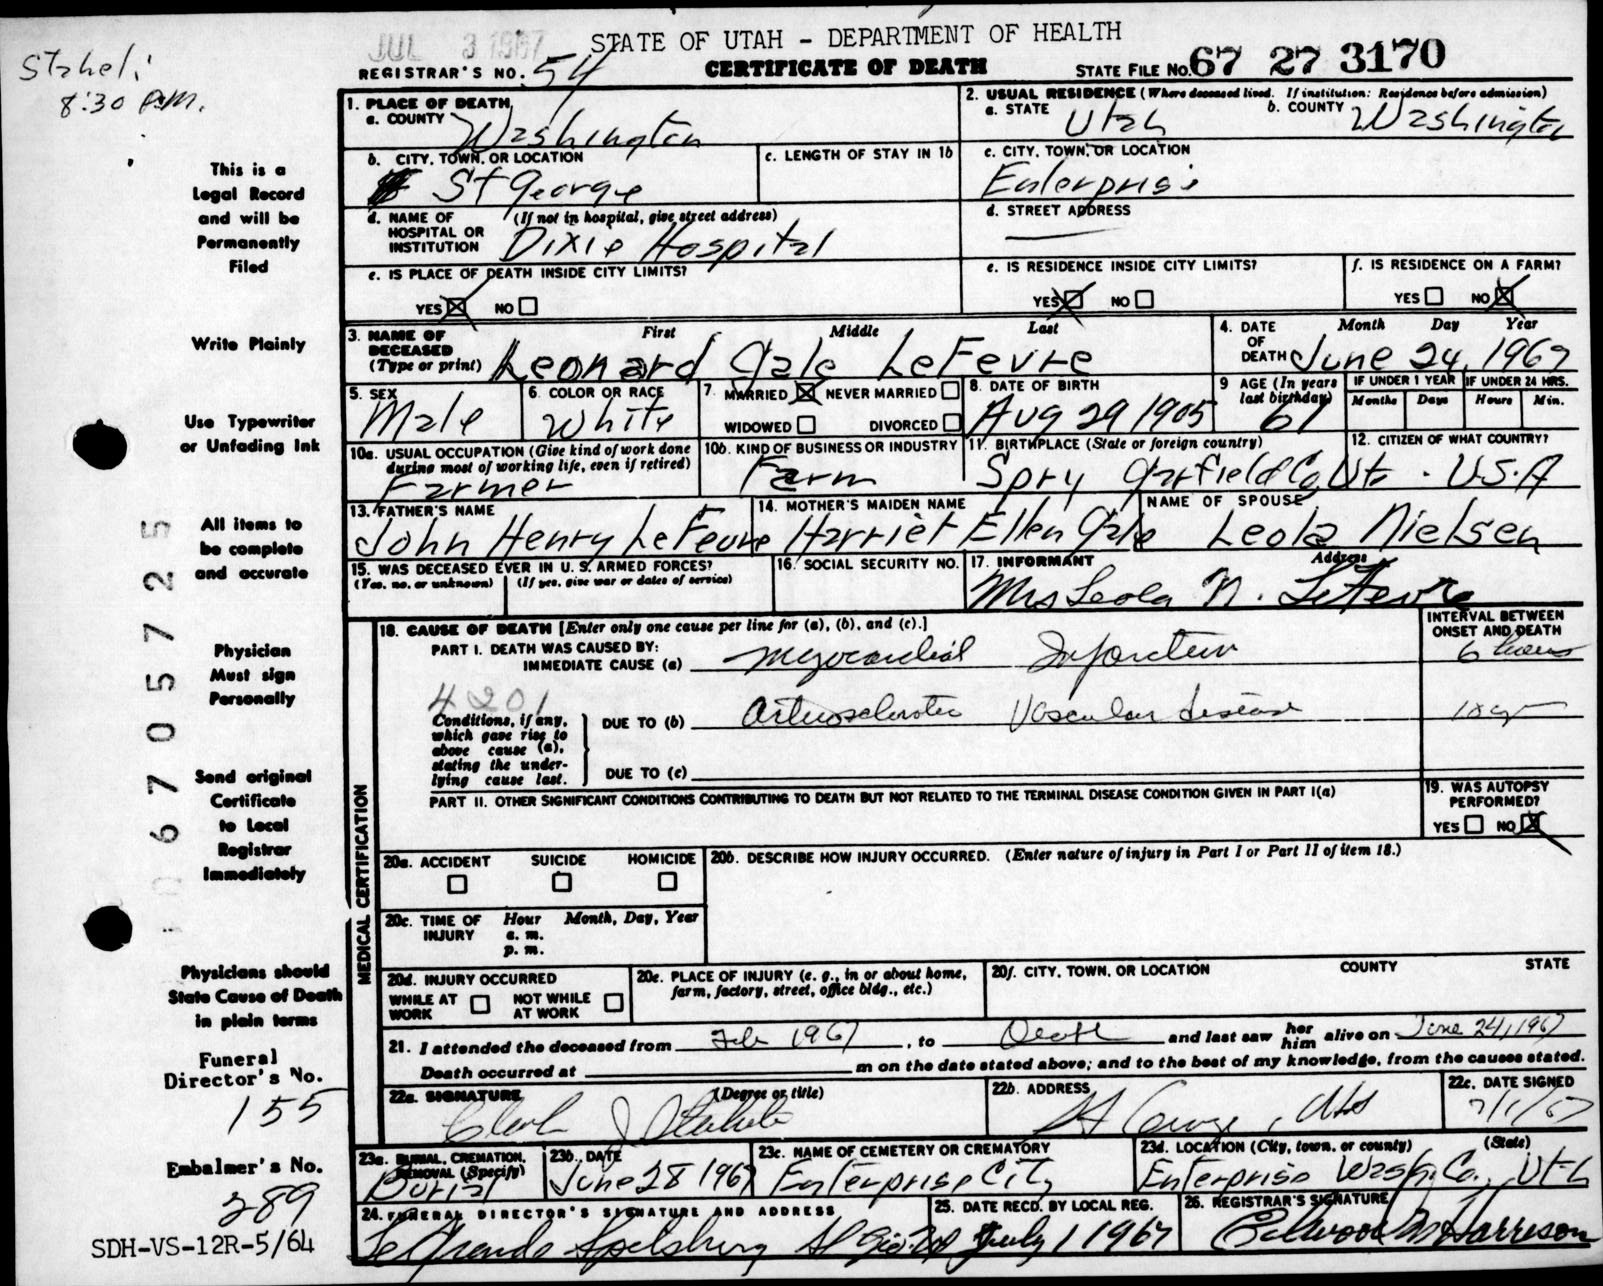 JUL 3 1967
STATE OF UTAH - DEPARTMENT OF HEALTH
Staheli
8:30 P.M.
REGISTRAR'S NO. 54
CERTIFICATE OF DEATH
STATE FILE NO. 67 27 3170
1. PLACE OF DEATH
a. COUNTY Washington
2. USUAL RESIDENCE (Where deceased lived. If institution: Residence before admission)
a. STATE Utah
b. COUNTY Washington
b. CITY, TOWN, OR LOCATION
St George
c. LENGTH OF STAY IN 1b
c. CITY, TOWN, OR LOCATION
Enterprise
d. NAME OF HOSPITAL OR INSTITUTION (If not in hospital, give street address)
Dixie Hospital
d. STREET ADDRESS
e. IS PLACE OF DEATH INSIDE CITY LIMITS?
YES NO
e. IS RESIDENCE INSIDE CITY LIMITS?
YES NO
f. IS RESIDENCE ON A FARM?
YES NO
3. NAME OF DECEASED (Type or print)
First Middle Last
Leonard Gale LeFevre
4. DATE OF DEATH
Month Day Year
June 24, 1967
5. SEX
Male
6. COLOR OR RACE
White
7. MARRIED NEVER MARRIED
WIDOWED DIVORCED
8. DATE OF BIRTH
Aug 29 1905
9 AGE (In years last birthday)
61
IF UNDER 1 YEAR
Months Days
IF UNDER 24 HRS.
Hours Min.
10a. USUAL OCCUPATION (Give kind of work done during most of working life, even if retired)
Farmer
10b. KIND OF BUSINESS OR INDUSTRY
Farm
11. BIRTHPLACE (State or foreign country)
Spry Garfield Co, Ut.
12. CITIZEN OF WHAT COUNTRY?
U.S.A
13. FATHER'S NAME
John Henry LeFevre
14. MOTHER'S MAIDEN NAME
Harriet Ellen Gale
NAME OF SPOUSE
Leola Nielsen
15. WAS DECEASED EVER IN U. S. ARMED FORCES?
(Yes, no, or unknown) (If yes, give war or dates of service)
16. SOCIAL SECURITY NO.
17. INFORMANT Address
Mrs Leola N. LeFevre
18. CAUSE OF DEATH [Enter only one cause per line for (a), (b), and (c).]
INTERVAL BETWEEN ONSET AND DEATH
PART I. DEATH WAS CAUSED BY:
IMMEDIATE CAUSE (a) Myocardial Infarction
6 hours
4201
Conditions, if any, which gave rise to above cause (a), stating the underlying cause last.
DUE TO (b) Arteriosclerotic Vascular disease
DUE TO (c)
PART II. OTHER SIGNIFICANT CONDITIONS CONTRIBUTING TO DEATH BUT NOT RELATED TO THE TERMINAL DISEASE CONDITION GIVEN IN PART I(a)
19. WAS AUTOPSY PERFORMED?
YES NO
MEDICAL CERTIFICATION
20a. ACCIDENT SUICIDE HOMICIDE
20b. DESCRIBE HOW INJURY OCCURRED. (Enter nature of injury in Part I or Part II of item 18.)
20c. TIME OF INJURY
Hour Month, Day, Year
a. m.
p. m.
20d. INJURY OCCURRED
WHILE AT WORK NOT WHILE AT WORK
20e. PLACE OF INJURY (e. g., in or about home, farm, factory, street, office bldg., etc.)
20f. CITY, TOWN, OR LOCATION COUNTY STATE
21. I attended the deceased from Feb 1967, to Death and last saw her him alive on June 24, 1967
Death occurred at m on the date stated above; and to the best of my knowledge, from the causes stated.
22a. SIGNATURE (Degree or title)
22b. ADDRESS
St George, Utah
22c. DATE SIGNED
7/1/67
23a. BURIAL, CREMATION, REMOVAL (Specify)
Burial
23b. DATE
June 28 1967
23c. NAME OF CEMETERY OR CREMATORY
Enterprise City
23d. LOCATION (City, town, or county) (State)
Enterprise Wash. Co., Utah
24. FUNERAL DIRECTOR'S SIGNATURE AND ADDRESS
25. DATE RECD. BY LOCAL REG.
July 1 1967
26. REGISTRAR'S SIGNATURE
Ellwood M Harrison
This is a
Legal Record
and will be
Permanently
Filed
Write Plainly
Use Typewriter
or Unfading Ink
All items to
be complete
and accurate
Physician
Must sign
Personally
Send original
Certificate
to Local
Registrar
Immediately
Physicians should
State Cause of Death
in plain terms
Funeral
Director's No.
155
Embalmer's No.
289
SDH-VS-12R-5/64
0 6 7 0 5 7 2 5